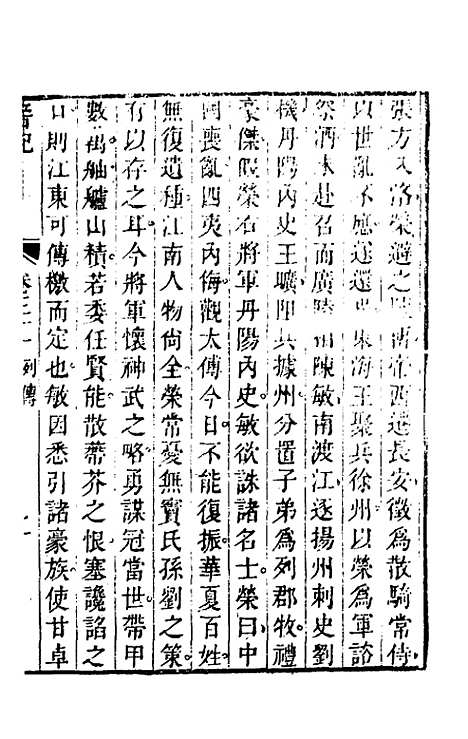 張方入洛榮避之
帝西遷長安徵為散騎常侍
以世亂不應
東海王聚兵徐州以榮為軍諮
祭酒未赴召而廣陵相陳敏南渡江逐揚州刺史劉
機丹陽內史王曠阻兵據州分置子弟為列郡牧禮
豪傑假榮右將軍丹陽內史敏欲誅諸名士榮曰中
國喪亂四夷內侮觀太傅今日不能復振華夏百姓
無復遺種江南人物尚全榮常憂無竇氏孫劉之策
有以存之耳今將軍懷神武之略勇謀冠當世帶甲
數萬舳艫山積若委任賢能散蔕芥之恨塞讒諂之
口則江東可傳檄而定也敏因悉引諸豪族使甘卓
晉記
列傳